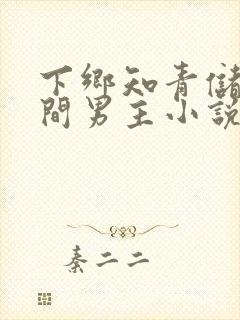 下鄉知青儲
間男主小說
秦二二